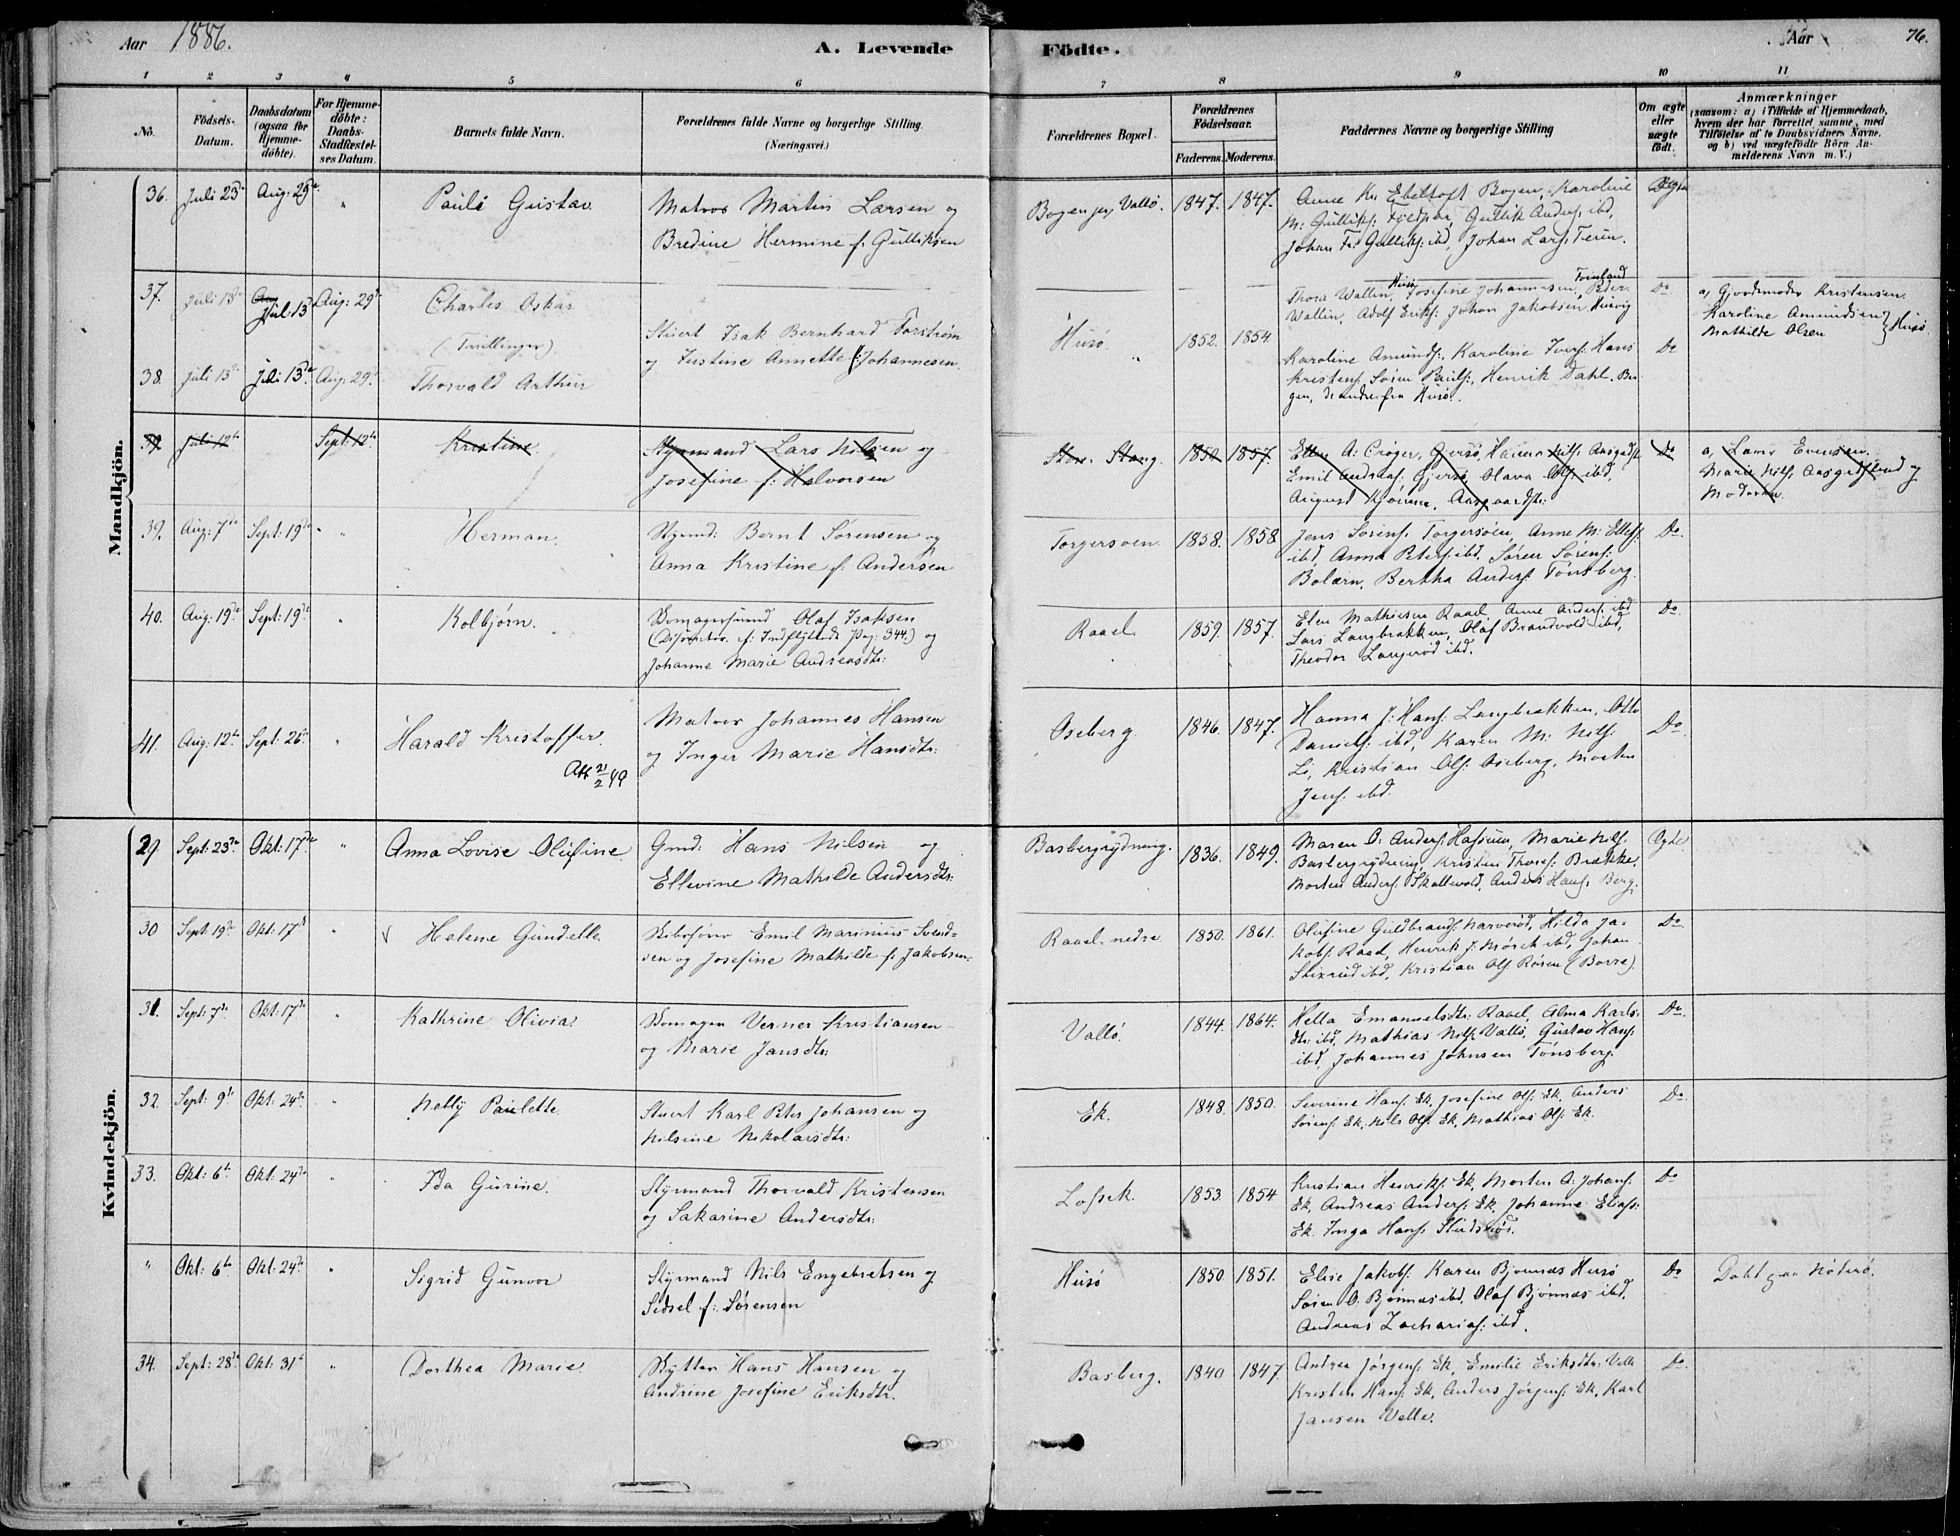 Aar 1886.
A. Levende Födte.
Aar
76.
1 2 3 4 5 6 7 8 9 10 11
No.
Födsels-Datum.
Daabsdatum (ogsaa for Hjemme-döbte).
For Hjemme-döbte: Daabs-Stadfæstel-ses Datum.
Barnets fulde Navn.
Forældrenes fulde Navne og borgerlige Stilling.
(Næringsvei.)
Forældrenes Bopæl.
Forældrenes Födselsaar.
Faderens. Moderens.
Faddernes Navne og borgerlige Stilling
Om ægte eller uægte födt.
Anmærkninger
(saasom: a) i Tilfælde af Hjemmedaab,
hvem der har forrettet samme, med
Tilföielse af to Daabsvidners Navne,
og b) ved uægtefödte Börn An-
melderens Navn m. V.)
Mandkjön.
36. Juli 23de Aug: 29de " Pauli Gustav
Matros Martin Larsen og
Bredine Hermine f: Gulliksen
Bogen pr Vallö. 1847. 1847.
Anne K. Ebeltoft Bogen, Karoline
M: Gulliks: Fjeldpaa, Gullik Anders: ibd,
Johan Fr: Gulliks: ibd, Johan Lars: Ferin.
Ægte
37. Juli 13de Juli 13de Aug: 29de Charles Oskar
(Tvillinger)
Stuert Isak Bernhard Forstrøm
og Justine Annette f: Johannesen.
Husö. 1852. 1854.
Thora Wallin, Husö, Josefine Johannesen, Peter
Wallin, Adolf Eriks: Johan Jakobsen, Husvig
Do
a, Gjordemoder Kristensen.
Karoline Amundsen
Mathilde Olsen } Husö.
38. Juli 13de Juli 13de Aug: 29de Thorvald Arthur
Karoline Amunds:, Karoline Ivers: Hans
Kristens, Søren Pauls:, Henrik Dahl, Ber-
gen, de andre fra Husö.
Do
39. Juli 12te Sept: 12te Kristine.
Styrmand Lars Nilsen og
Josefine f: Halvorsen
Store Stang 1850 1857.
Ellen A: Crøger, Gjersö, Hanna Nils: Aasgdst
Emil Andreas: Gjersö, Olava Ols: ibd,
August Aasgaardstr:
Do
a, Evensen.
Marie Nils: Aasgdstrand og
Moderen.
39. Aug: 7de Sept: 19de " Herman.
Styrmd: Bernt Sørensen og
Anna Kristine f: Andersen
Torgersöen. 1858. 1858
Jens Sørens: Torgersöen, Anne M: Ellefs:
ibd, Anna Peters: ibd, Søren Sørens:
Bolærn, Bertha Anders: Tönsberg.
Do.
40. Aug: 19de Sept: 19de " Kolbjørn.
Skomagersvend Olaf Isaksen
(Dissenter. f: Indflyttede Pag: 344.) og
Johanne Marie Andreasdtr:
Raael. 1859. 1857.
Elen Mathiesen Raael, Anne Anders: ibd
Lars Langbrækken, Olaf Brandvold ibd,
Theodor Langerød ibd.
Do.
41. Aug: 12te Sept: 26de " Harald Kristoffer.
Att 21/2 49
Matros Johannes Hansen
og Inger Marie Hansdtr:
Oseberg. 1846. 1847.
Hanna J: Hans: Langbrækken, Otto
Daniels: ibd, Karen M: Nils:
Li, Kristian Ols: Oseberg, Morten
Jens: ibd.
Do
Kvindekjön.
29 Sept: 23de Okt: 17de " Anna Lovise Olufine.
Gmd: Hans Nilsen og
Ellevine Mathilde Andersdtr:
Basbergrydning. 1836. 1849.
Maren O: Anders: Hassum, Marie Nils:
Basbergrydning, Kristen Thores: Brække,
Morten Anders: Skallevold, Anders Hans: Berg.
Ægte
30 Sept: 19de Okt: 17de " V Helene Gundelle
Skibsfører Emil Marinius Svend-
sen og Josefine Mathilde f: Jakobsen.
Raael nedre 1850. 1861.
Olufine Guldbrands: Narverød, Hilda Ja-
kobs: Raael, Henrik J: Mörch ibd, Johan
Stixrud ibd, Kristian Ols: Røren (Borre).
Do
31. Sept: 7de Okt: 17de " Kathrine Olivia.
Skomager Verner Kristiansen
og Marie Jansdtr:
Vallö. 1844. 1864.
Hella Emanuelsdtr: Raael, Alma Karls-
dtr: ibd, Mathias Nils: Vallö, Gustav Hans:
ibd, Johannes Johnsen Tönsberg.
Do.
32. Sept: 9de Okt: 24de " Nelly Paulette
Stuert Karl Peter Johansen og
Nilsine Nikolaisdtr:
Ek. 1848. 1850.
Severine Hans: Ek, Josefine Ols: Ek, Anders
Sörens: Ek, Nils Ols: Ek, Mathias Ols: Ek.
Do
33. Okt: 6te Okt: 24de " Ida Gurine.
Styrmand Thorvald Kristensen
og Sakarine Andersdtr:
Lofsek. 1853. 1854
Kristian Henriks: Ek, Morten A: Johans:
Ek, Andreas Anders: Ek, Johanne Elias:
Ek, Inga Hans:
Do
" Okt: 6te Okt: 24de " Sigrid Gunvor
Styrmand Nils Engebretsen og
Sidsel f: Sørensen
Husö 1850 1851.
Elise Jakobs: Karen Bjønnæs Husö
Søren O. Bjønnæs ibd, Olaf Bjønnæs ibd,
Andreas Zacharias: ibd.
Do
Døbt paa Nøterø.
34. Sept: 28de Okt: 31te " Dorthea Marie.
Skytter Hans Hansen og
Andrine Josefine Eriksdtr.
Basberg. 1840 1847.
Andrea Jørgens: Ek, Emilie Eriksdtr: Velle
Kristen Hans: Ek, Anders Jørgens: Ek, Karl
Jansen Velle.
Do.